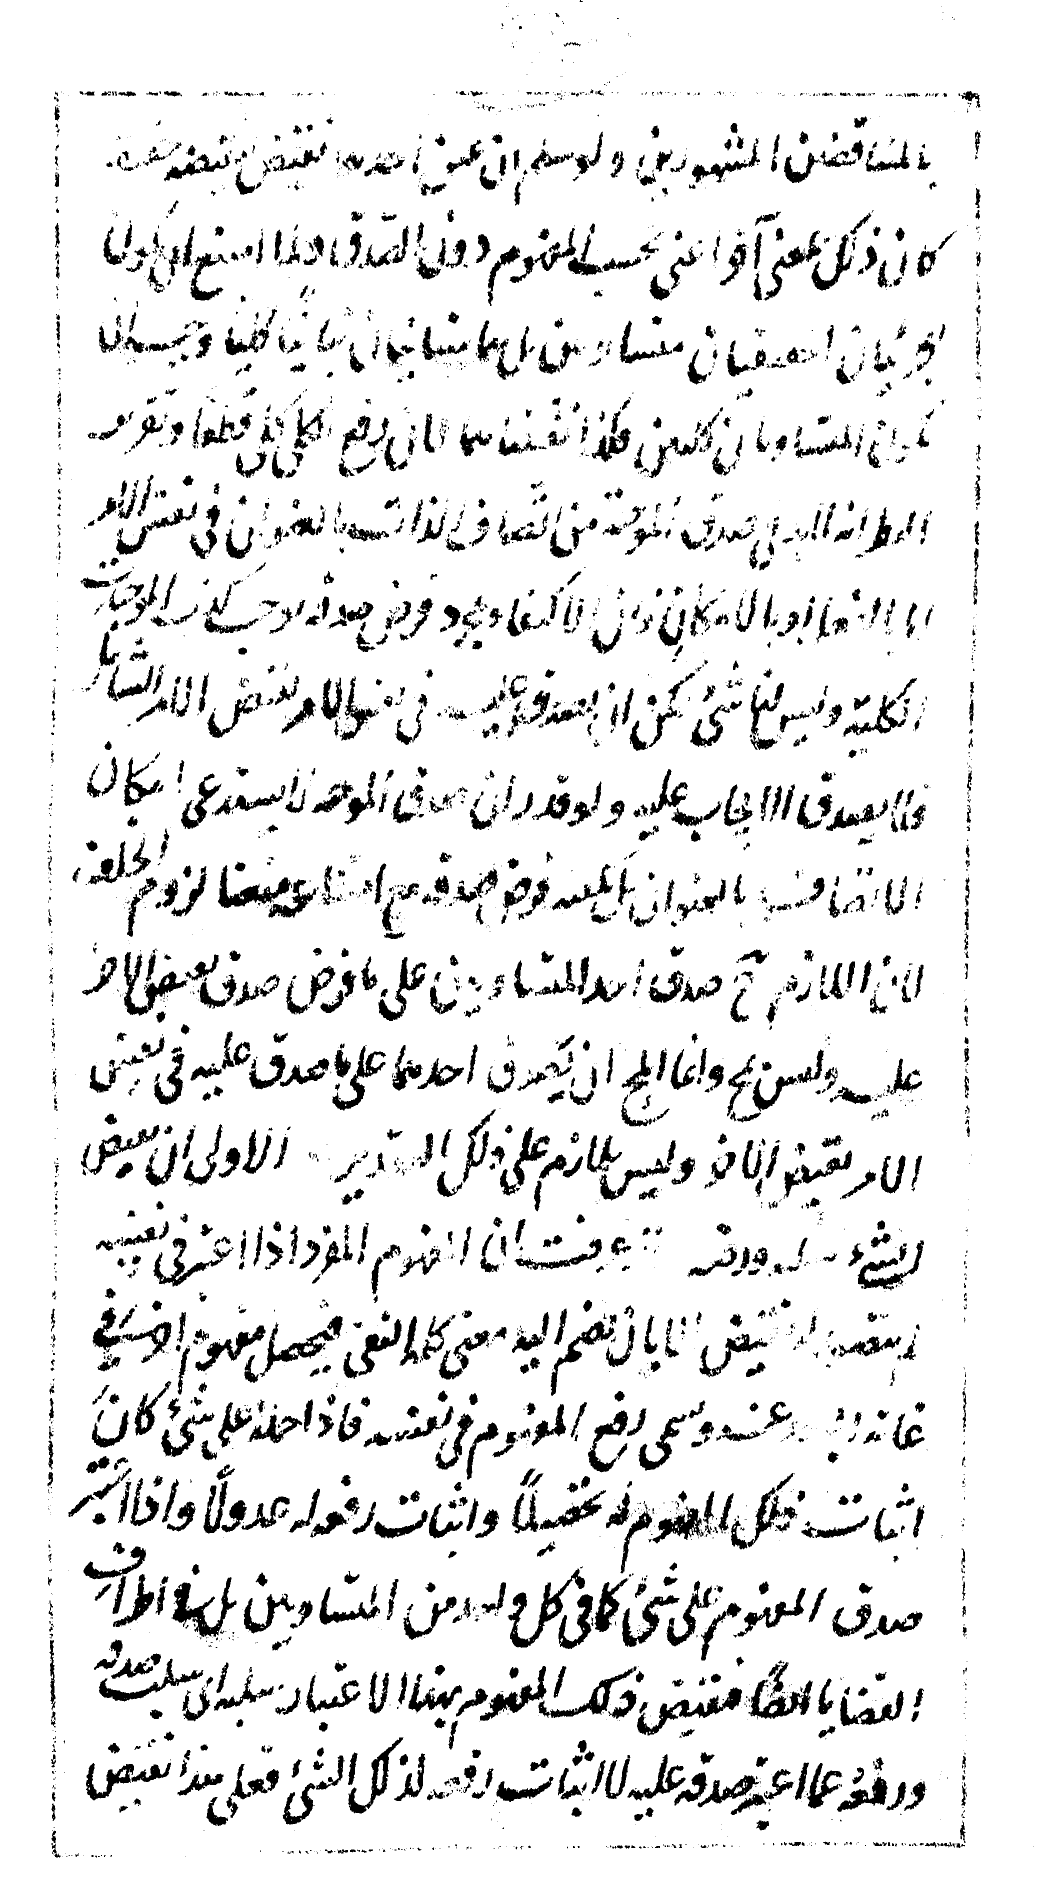 بالمتناقضين المشهورين ولو سلم ان عين احدهما نقيض نقيضه
كان ذلك بمعنى آخر اعنى بحسب المفهوم دون الصدق ولما امتنع ان يكون
الجزئيان الحقيقيان متساويين بل هما متباينان تباينا كليا وجب ان
يكون المتساويان كليين وكذا نقيضاهما لان رفع الكلى كلى قطعا وتقرير
انه لابد فى صدق الموجبة من اتصاف الذات بالعنوان فى نفس الامر
اما بالفعل او بالامكان اذ الاكتفاء بمجرد فرض صدقه يوجب كذب الموجبات
الكلية وليس لنا شئ يمكن ان يصدق عليه فى نفس الامر نقيض الامر الشامل
فلا يصدق الايجاب عليه ولو قدر ان صدق الموجبة لا يستدعى امكان
الاتصاف بالعنوان بل يكفيه فرض صدقه مع امتناعه منعنا لزوم الخلف
لان اللازم ح صدق احد المتساويين على ما فرض صدق نقيض الاخر
عليه وليس بمح وانما المح ان يصدق احدهما على ما صدق عليه فى نفس
الامر نقيض الاخر وليس بلازم على ذلك التقدير الاولى ان نقيض
الشئ سلبه ورفعه عرفت ان المفهوم المفرد اذا اعتبر فى نفسه
لم يتصور له نقيض الا بان يضم اليه معنى كلمة النفى فيحصل مفهوم اخر فى
غاية البعد عنه وسمى رفع المفهوم فى نفسه فاذا حمل على شئ كان
اثبات ذلك المفهوم له تحصيلا واثبات رفعه له عدولا واذا اعتبر
صدق المفهوم على شئ كما فى كل واحد من المتساويين بل فى اطراف
القضايا ايضا فنقيض ذلك المفهوم بهذا الاعتبار سلبه اى سلب صدقه
ورفعه عما اعتبر صدقه عليه لا اثبات رفعه لذلك الشئ فعلى هذا نقيض